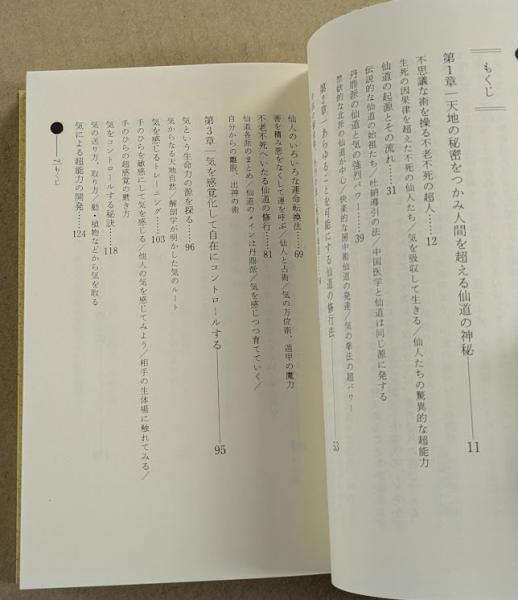 もくじ
第1章―天地の秘密をつかみ人間を超える仙道の神秘――11
不思議な術を操る不老不死の超人……12
生死の因果律を超えた不死の仙人たち／気を吸収して生きる／仙人たちの驚異的な超能力
仙道の起源とその流れ……31
伝説的な仙道の始祖たち／吐納導引の法／中国医学と仙道は同じ源に発する
丹鼎派の仙道と気の強烈パワー……39
禁欲的な北派の仙道が中心／快楽的な房中術仙道の発達／気の拳法の超パワー
第2章―あらゆることを可能にする仙道の修行法――53
仙人のいろいろな運命転換法……69
善を積み悪をなくして運を呼ぶ／仙人と占術／気の方位術、遁甲の魔力
不老不死へいたる仙道の修行……81
仙道各派のまとめ／仙道のメインは丹鼎派／気を感じつつ育てていく／
自分からの離脱、出神の術
第3章―気を感覚化して自在にコントロールする――95
気という生命力の源を探る……96
気からなる天地自然／解剖学が明かした気のルート
気を感じるトレーニング……103
手のひらを敏感にして気を感じる／他人の気を感じてみよう／相手の生体場に触れてみる／
手のひらの超感覚の磨き方
気をコントロールする秘訣……118
気の送り方、取り方／動・植物などから気を取る
気による超能力の開発……124
7もくじ